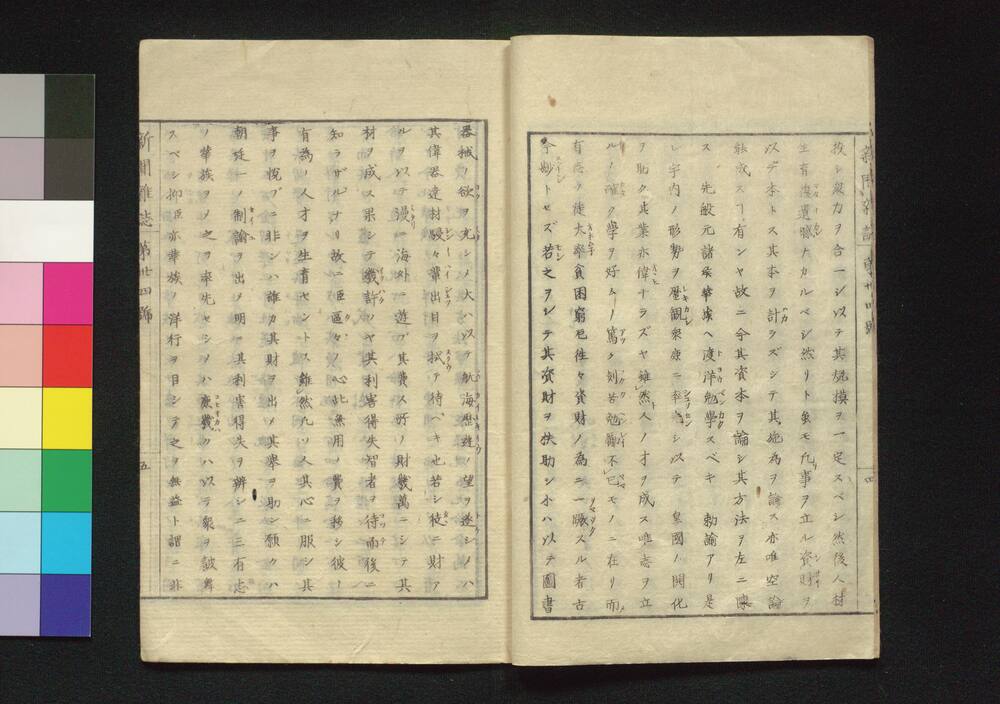 新聞雑誌 第廿四號 四
投シ衆力ヲ合一シ以テ其規摸ヲ一定スベシ然後人材
生育復遺憾ナカルベシ然リト虽モ凢事ヲ立ル資財ヲ
以テ本トス其本ヲ計ラズシテ其施為ヲ論ス亦唯空論
ス 先般元諸矦華族ヘ渡洋勉學スベキ 勅諭アリ是
レ宇内ノ形勢ヲ歴観衆庶ニ率先シ以テ 皇國ノ開化
ヲ助ク其業亦偉ナラズヤ雖然人ノ才ヲ成ス唯志ヲ立
ルノ確ク學ヲ好ムノ篤ク刻苦勉勵不已モノニ在リ而
有志ノ徒大率貧困窮乏徃々資財ノ為ニ一蹶スル者古
今尠トセズ若之ヲシテ其資財ヲ扶助シ小ハ以テ圖書
器械ノ欲ヲ充シメ大ハ以テ航海歴遊ノ望ヲ遂シメハ
其偉器達材駸々輩出目ヲ拭テ待ヘキ也若シ徒ニ財ア
ルヲ以テ漫ニ海外ニ遊フ其費ス所ノ財幾萬ニシテ其
材ヲ成ス果シテ幾許ソヤ其利害得失智者ヲ待而後ニ
知ラザルナリ故ニ臣區々ノ心此無用ノ費ヲ移シ彼ノ
有為ノ人才ヲ生育セントス雖然凢ソ人其心ニ服シ其
事ヲ悦ブニ非ンハ誰カ其財ヲ出メ其舉ヲ助シ願クハ
朝廷一ノ制諭ヲ出メ明ニ其利害得失ヲ辨シ二三有志
ノ華族ヲメ之ヲ率先セシメハ庶幾クハ以テ衆ヲ鼓舞
スベシ抑臣亦華族ノ洋行ヲ目シテ之ヲ無益ト謂ニ非
新聞雑誌 第廿四號 五